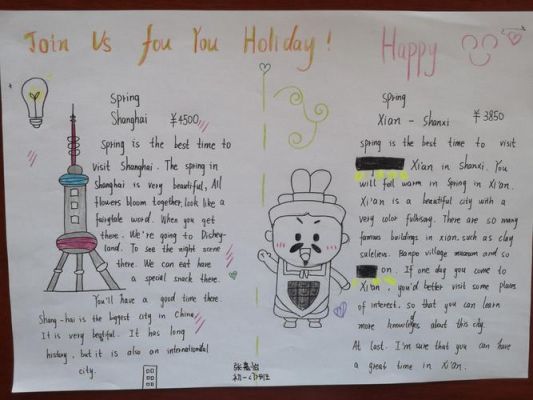 Join Us fou You Holiday!
Happy
Spring
Shanghai ¥4500
Spring is the best time to
visit Shanghai. The spring in
Shanghai is very beautiful, All
flowers bloom together, look like a
fairytale word. When you get
there. We're going to Dichey-
land. To see the night scene
there. We can eat have
a special snack there.
You'll have a good time there.
Shang-hai is the biggest city in China.
It is very beautiful. It has long
history, but it is also an international
city.
spring
Xian - Shanxi ¥3850
spring is the best time to visit
Xi'an in Shanxi. You
will fell warm in Spring in Xi'an.
Xi'an is a beautiful city with a
very color
There are so many
famous buildings in xian. such as clay
Banpo village museum and so
on. If one day you come to
Xi'an, you'd better visit some places
of interest. so that you can learn
more knowledges about this city.
At last. I'm sure that you can have
a great time in Xi'an.